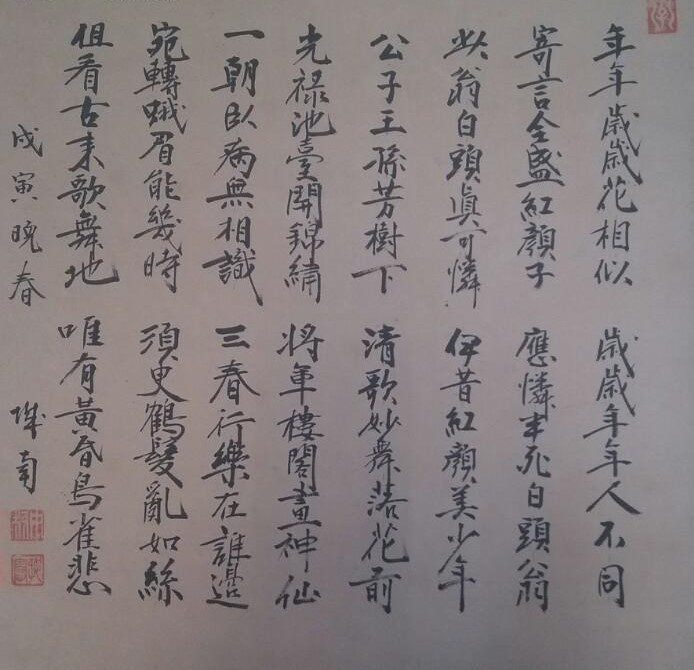 年年歲歲花相似 歲歲年年人不同
寄言全盛紅顏子 應憐半死白頭翁
此翁白頭真可憐 伊昔紅顏美少年
公子王孫芳樹下 清歌妙舞落花前
光祿池臺開錦繡 將軍樓閣畫神仙
一朝臥病無相識 三春行樂在誰邊
宛轉蛾眉能幾時 須臾鶴髮亂如絲
但看古來歌舞地 唯有黃昏鳥雀悲
戊寅晚春 南